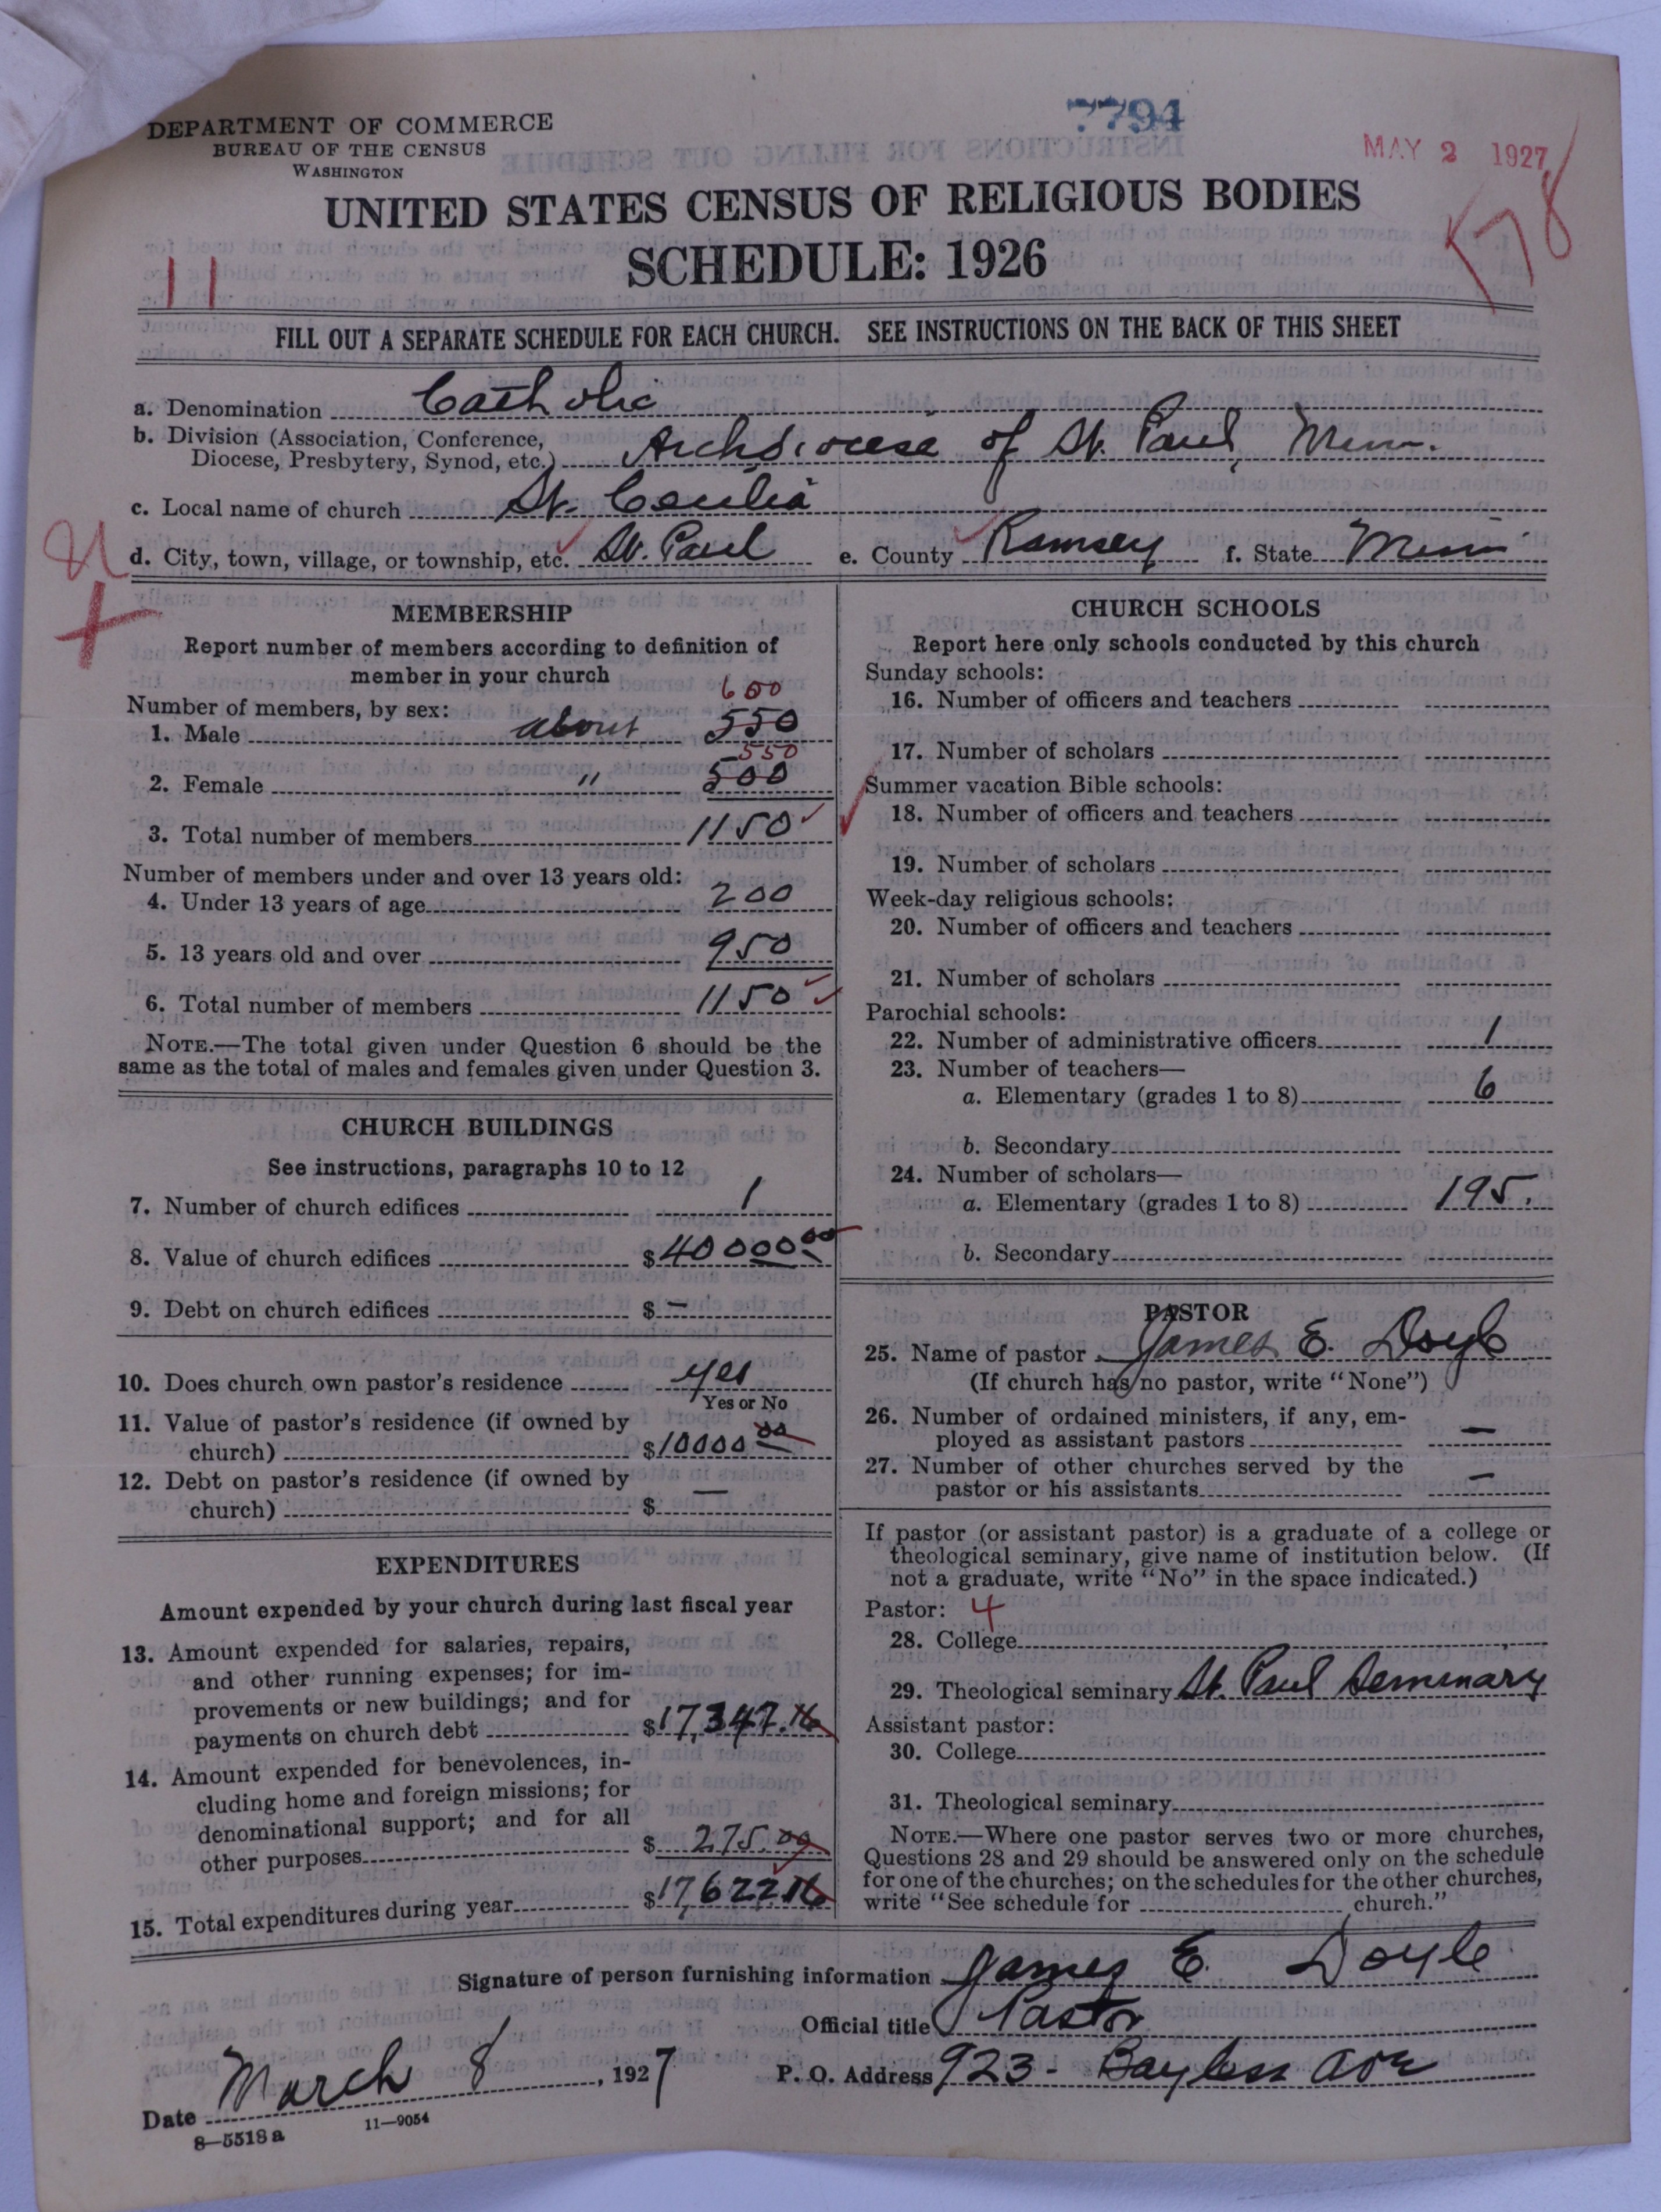 7794
MAY 2 1927
DEPARTMENT OF COMMERCE
BUREAU OF THE CENSUS
WASHINGTON
UNITED STATES CENSUS OF RELIGIOUS BODIES
SCHEDULE: 1926
11
FILL OUT A SEPARATE SCHEDULE FOR EACH CHURCH. SEE INSTRUCTIONS ON THE BACK OF THIS SHEET
a. Denomination Catholic
b. Division (Association, Conference, Diocese, Presbytery, Synod, etc.) Archdiocese of St. Paul, Minn.
c. Local name of church St. Cecilia
d. City, town, village, or township, etc. St. Paul e. County Ramsey f. State Minn
MEMBERSHIP
Report number of members according to definition of
member in your church
600
Number of members, by sex:
1. Male about 550
550
2. Female " 500
3. Total number of members 1150
Number of members under and over 13 years old:
4. Under 13 years of age 200
5. 13 years old and over 950
6. Total number of members 1150
NOTE.—The total given under Question 6 should be the
same as the total of males and females given under Question 3.
CHURCH BUILDINGS
See instructions, paragraphs 10 to 12
7. Number of church edifices 1
8. Value of church edifices $40000.00
9. Debt on church edifices $ —
10. Does church own pastor's residence yes
Yes or No
11. Value of pastor's residence (if owned by
church) $10000 00
12. Debt on pastor's residence (if owned by
church) $ —
EXPENDITURES
Amount expended by your church during last fiscal year
13. Amount expended for salaries, repairs,
and other running expenses; for im-
provements or new buildings; and for
payments on church debt $17,347.16
14. Amount expended for benevolences, in-
cluding home and foreign missions; for
denominational support; and for all
other purposes $ 275.00
15. Total expenditures during year $17,622.16
CHURCH SCHOOLS
Report here only schools conducted by this church
Sunday schools:
16. Number of officers and teachers
17. Number of scholars
Summer vacation Bible schools:
18. Number of officers and teachers
19. Number of scholars
Week-day religious schools:
20. Number of officers and teachers
21. Number of scholars
Parochial schools:
22. Number of administrative officers 1
23. Number of teachers—
a. Elementary (grades 1 to 8) 6
b. Secondary
24. Number of scholars—
a. Elementary (grades 1 to 8) 195.
b. Secondary
PASTOR
25. Name of pastor James E. Doyle
(If church has no pastor, write "None")
26. Number of ordained ministers, if any, em-
ployed as assistant pastors —
27. Number of other churches served by the
pastor or his assistants —
If pastor (or assistant pastor) is a graduate of a college or
theological seminary, give name of institution below. (If
not a graduate, write "No" in the space indicated.)
Pastor: 4
28. College
29. Theological seminary St. Paul Seminary
Assistant pastor:
30. College
31. Theological seminary
NOTE.—Where one pastor serves two or more churches,
Questions 28 and 29 should be answered only on the schedule
for one of the churches; on the schedules for the other churches,
write "See schedule for church."
Signature of person furnishing information James E. Doyle
Official title Pastor
Date March 8, 1927 P. O. Address 923 - Bayless Ave
8—5518 a 11—9054